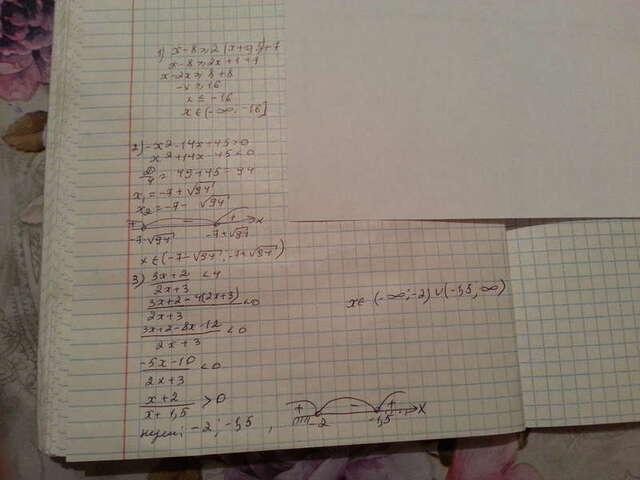 1) x-8 ≥ 2(x+0,5)+7
x-8 ≥ 2x+1+7
x-2x ≥ 8+8
-x ≥ 16
x ≤ -16
x ∈ (-∞; -16]
2) -x²-14x+45>0
x²+14x-45<0
D/4 = 49+45 = 94
x₁ = -7+√94
x₂ = -7-√94
+ - + x
-7-√94 -7+√94
x ∈ (-7-√94; -7+√94)
3) (3x+2)/(2x+3) < 4
(3x+2-4(2x+3))/(2x+3) < 0
(3x+2-8x-12)/(2x+3) < 0
(-5x-10)/(2x+3) < 0
(x+2)/(x+1,5) > 0
нули: -2; -1,5,
+ - + x
-2 -1,5
x ∈ (-∞; -2) ∪ (-1,5; ∞)